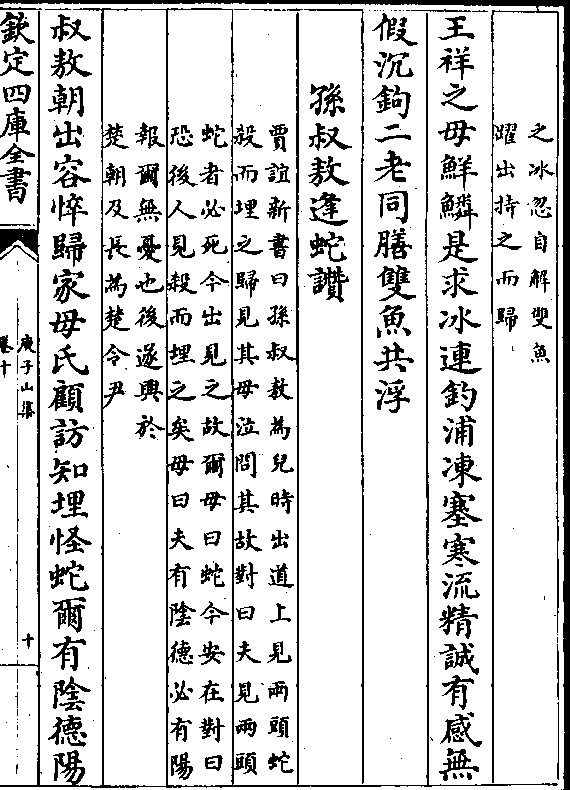 之冰忽自解雙魚
躍出持之而歸
王祥之母鮮鱗是求冰連釣浦凍塞寒流精誠有感無
假沉鉤二老同膳雙魚共浮
孫叔敖逢蛇讚
賈誼新書曰孫叔敖為兒時出道上見兩頭蛇
殺而埋之歸見其母泣問其故對曰夫見兩頭
蛇者必死今出見之故爾母曰蛇今安在對曰
恐後人見殺而埋之矣母曰夫有陰德必有陽
報爾無憂也後遂興於
楚朝及長為楚令尹
叔敖朝出容悴歸家母氏顧訪知埋怪蛇爾有陰德陽
欽定四庫全書
庾子山集
卷十
十